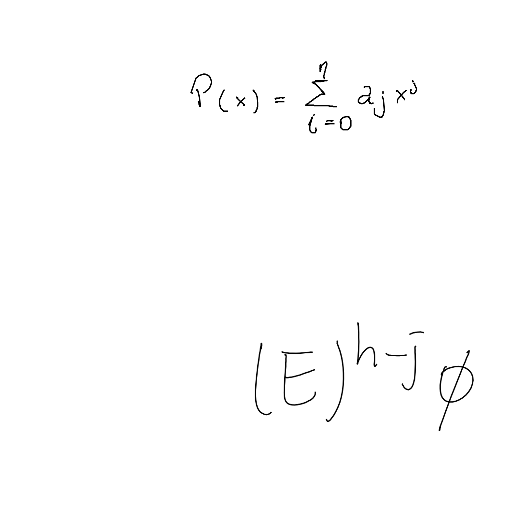 P(x) = \sum_{i=0}^{n} a_j x^j
(E)^{h-j} \phi